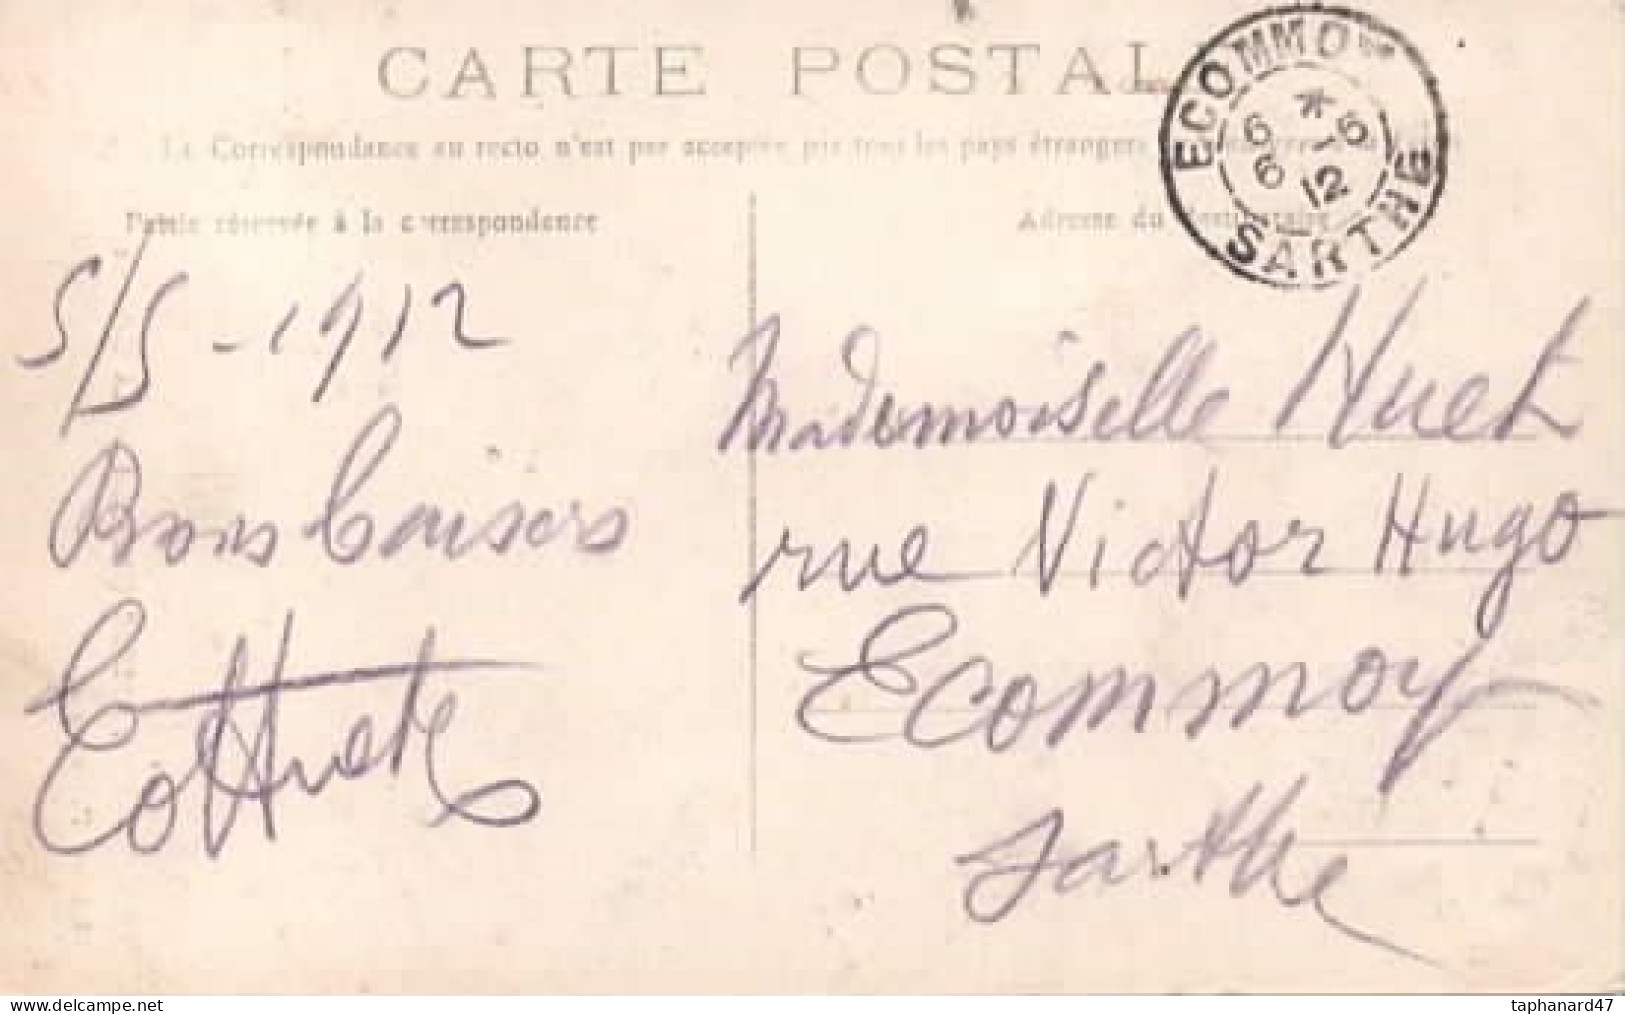 CARTE POSTALE
La Correspondance au recto n'est pas acceptée par tous les pays étrangers
Partie réservée à la correspondance
Adresse du destinataire
ECOMMOY
6 * 6
6 12
SARTHE
5/5 - 1912
Bons baisers
Mademoiselle Huet
rue Victor Hugo
Ecommoy
Sarthe
delcampe.net
taphanard47